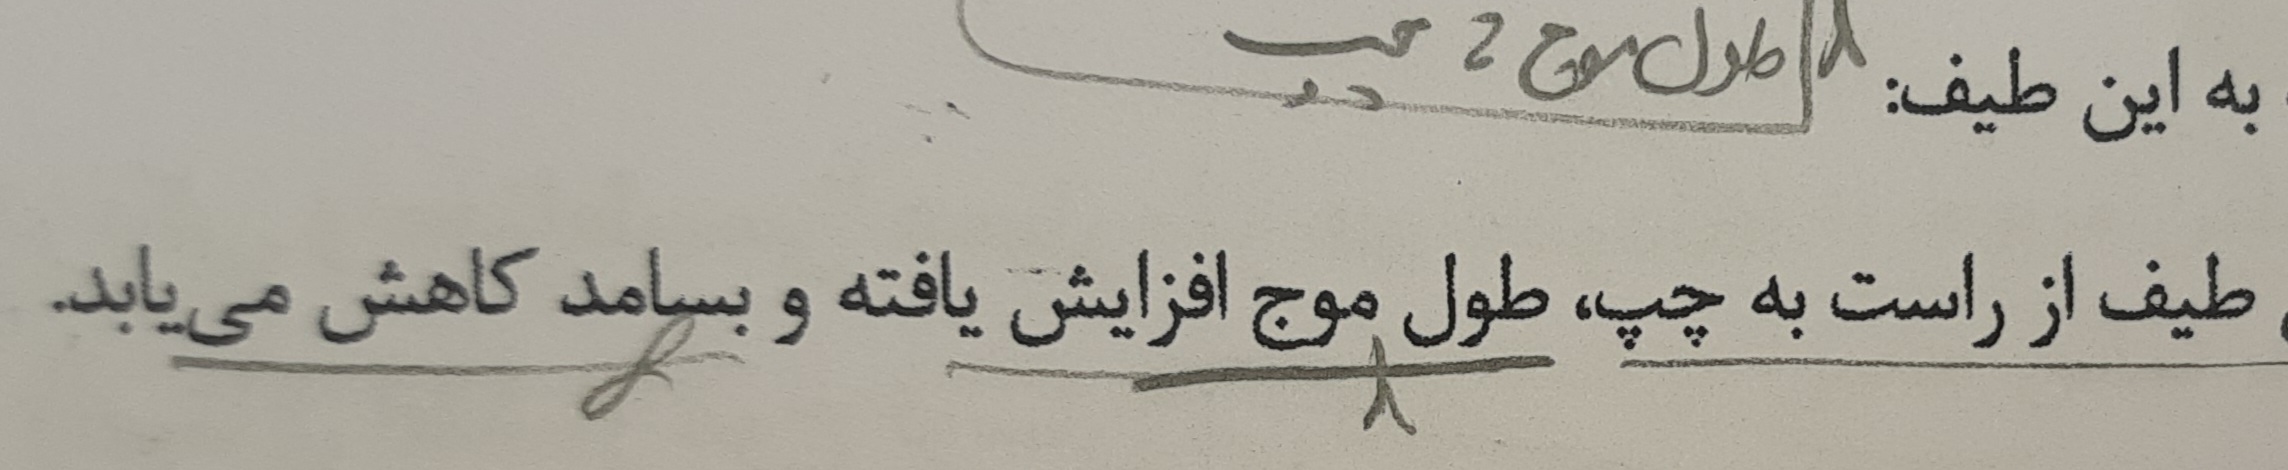 λ طول موج
به این طیف:
طیف از راست به چپ، طول موج افزایش یافته و بسامد کاهش می‌یابد.
λ f